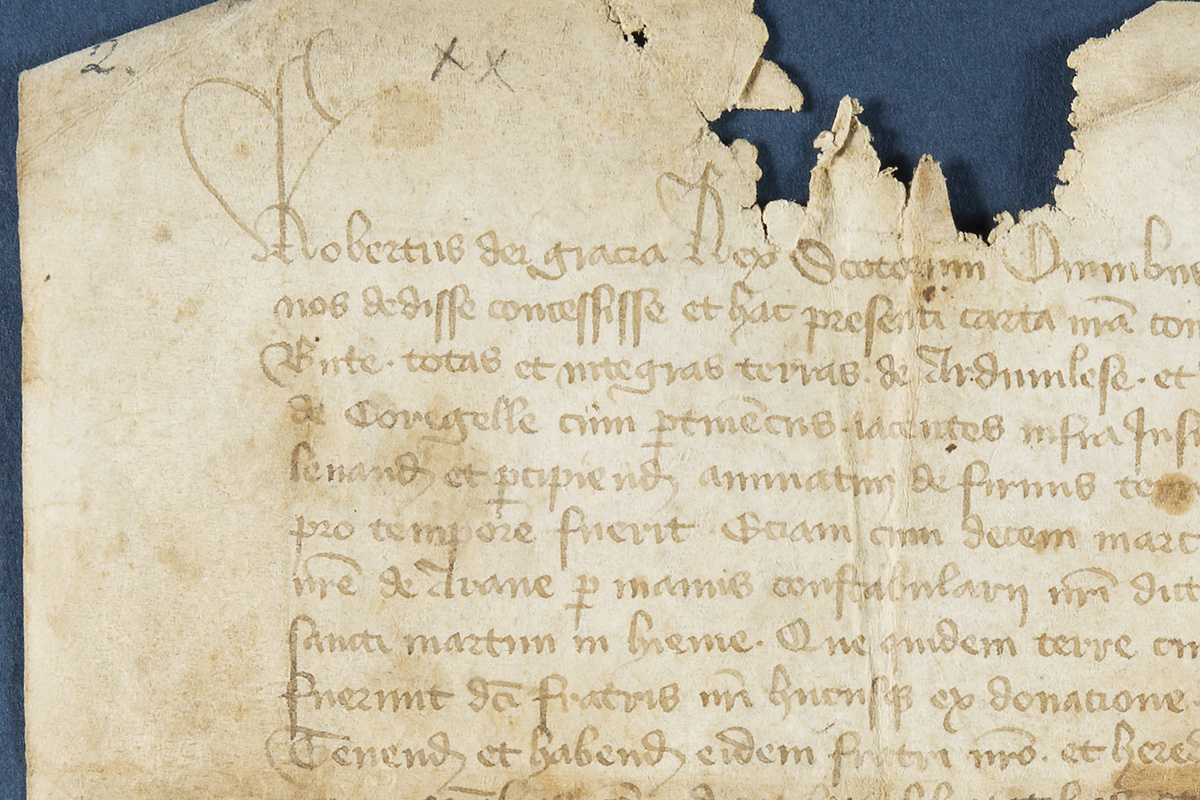 2.
xx
Robertus dei gracia Rex Scotorum Omnibus
nos dedisse concessisse et hac presenti carta nrā con
Bute · totas et integras terras · de Ardumlese · et
de Coregelle cum ptinēciis · iacentes infra Ins
leuand et pcipiend annuatim de firmis terr
pro tempore fuerit · Eciam cum decem marc
nrē de Arane p manus constabularii nrī dict
sancti martini in hieme · Que quidem terre cu
fuerunt dcī fratris nrī hucusq ex donacione
Tenend et habend eidem fratri nrō · et hered